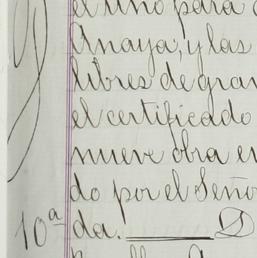 el uno para
Anaya, y las
libres de gra
el certificado
nueve obra en
do por el Seño
10ª da. D